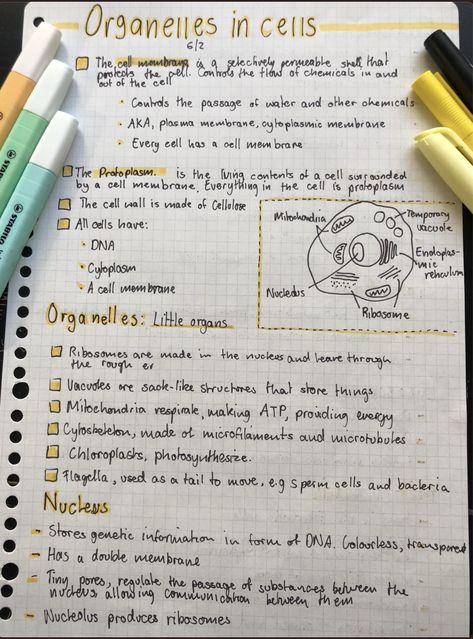 Organelles in cells
6/2
The cell membrane is a selectively permeable shell, that
protects the cell. Controls the flow of chemicals in and
out of the cell
• Controls the passage of water and other chemicals
• AKA, plasma membrane, cytoplasmic membrane
• Every cell has a cell membrane
The Protoplasm is the living contents of a cell surrounded
by a cell membrane, Everything in the cell is protoplasm
The cell wall is made of Cellulose
All cells have:
• DNA
• Cytoplasm
• A cell membrane
Mitochondria
Temporary
vacuole
Endoplas-
mic
reticulum
Nucleolus
Ribosome
Organelles: Little organs
Ribosomes are made in the nucleus and leave through
the rough er
Vacuoles are sack-like structures that store things
Mitochondria respirate, making ATP, providing energy
Cytoskeleton, made of microfilaments and microtubules
Chloroplasts, photosynthesize.
Flagella, used as a tail to move, e.g sperm cells and bacteria
Nucleus
- Stores genetic information in form of DNA. Colourless, transparent
- Has a double membrane
- Tiny pores, regulate the passage of substances between the
nucleus, allowing communication between them
- Nucleolus produces ribosomes
STABILO
STABILO
STABILO